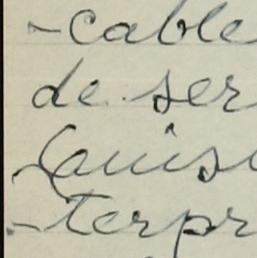 -cable
de ser
Louis
-terpr